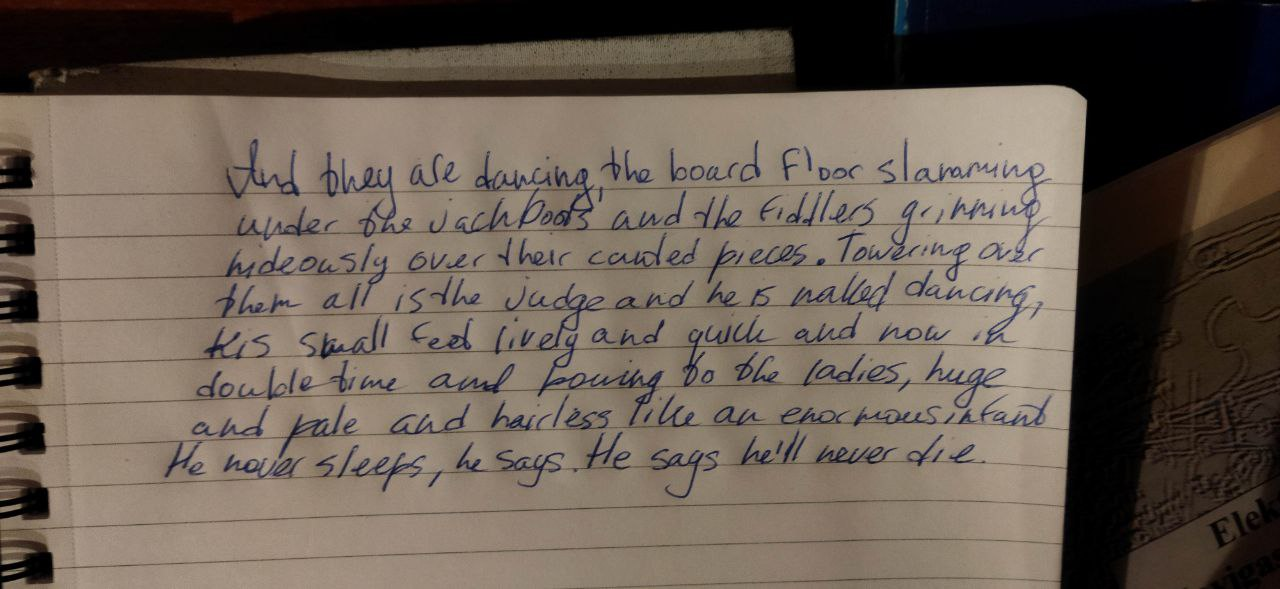 And they are dancing, the board floor slamming
under the jackboots and the fiddlers grinning
hideously over their canted pieces. Towering over
them all is the judge and he is naked dancing,
his small feet lively and quick and now in
double time and bowing to the ladies, huge
and pale and hairless like an enormous infant
He never sleeps, he says. He says he'll never die.
Elek